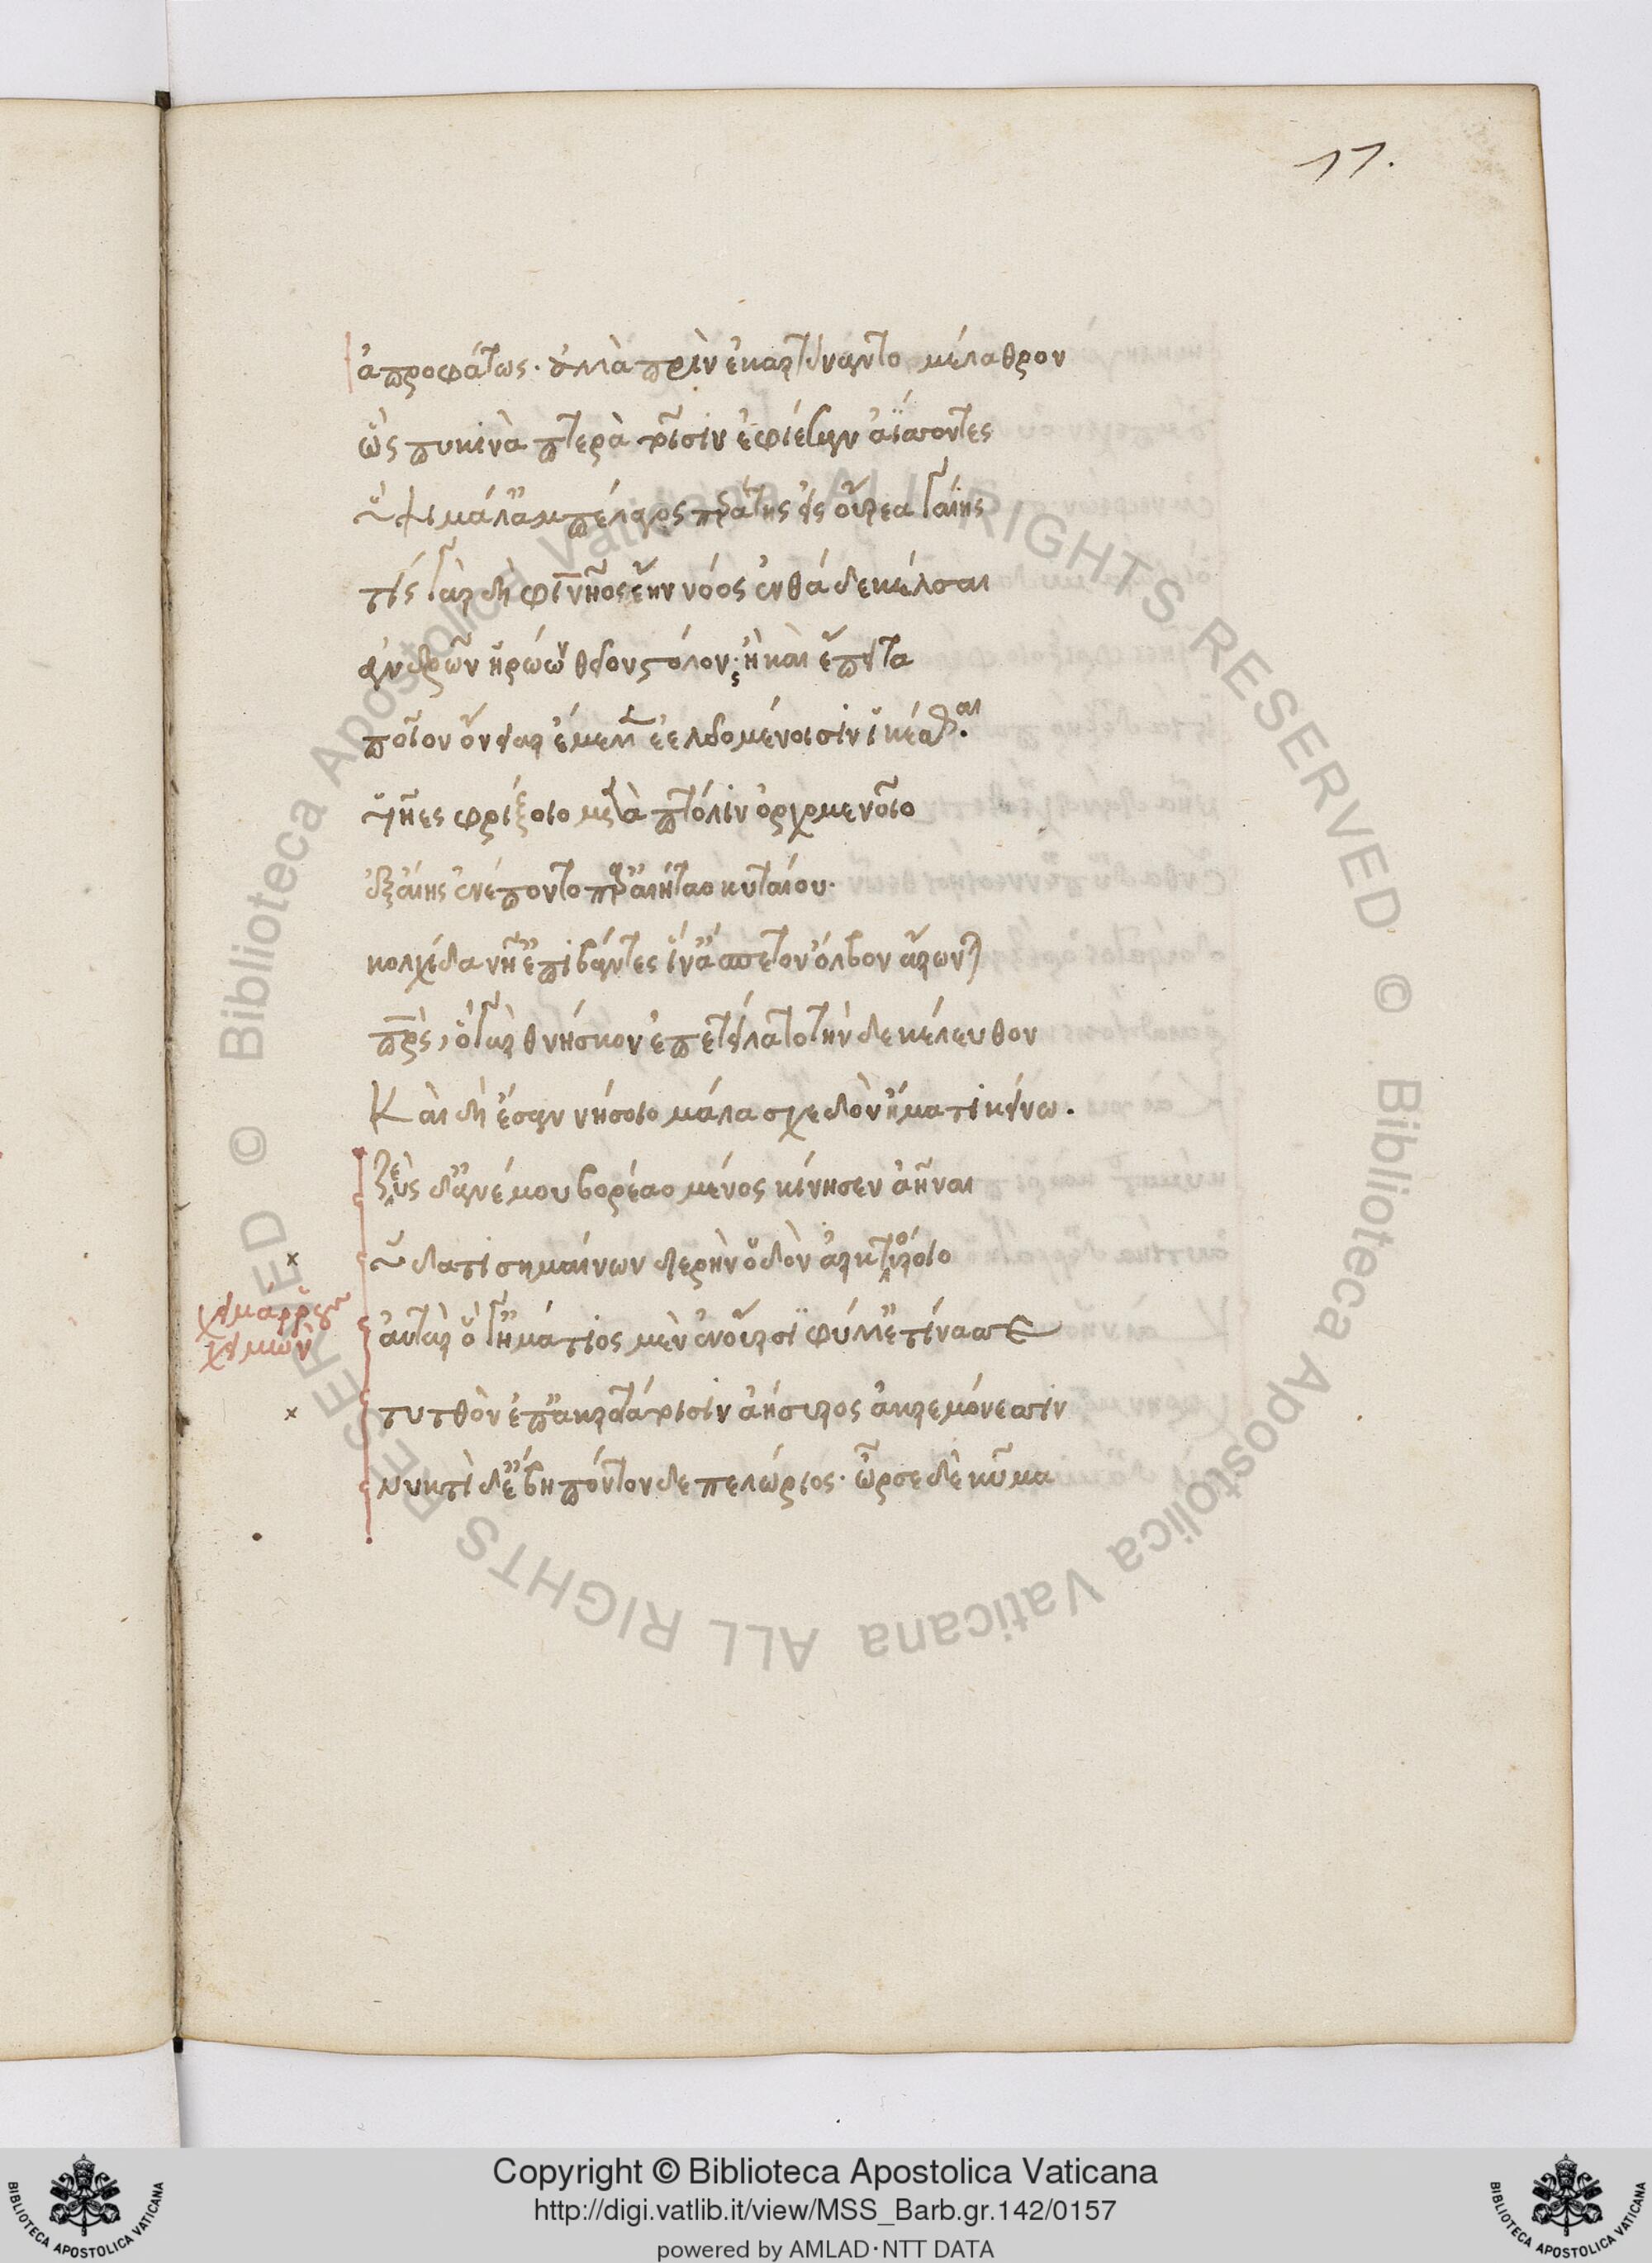 11.
ἀπροφάτως· ἀλλὰ πρὶν ἑκαρτύναντο μέλαθρον
ὣς πυκινὰ πτερὰ τοῖσιν ἐφίεσαν ἀΐσσοντες
ὕψι μάλ' ἂμ πέλαγος περάτης εἰς οὔρεα γαίης
τίς γὰρ δὴ φινῆος ἔην νόος ἐνθάδε κέλσαι
ἀνδρῶν ἡρώων θεῖον στόλον· ἢ καὶ ἔπειτα
ποῖον ὄνειαρ ἔμελλ' ἐελδομένοισιν ἱκέσθαι.
υἱῆες φρίξοιο μετὰ πτόλιν ὀρχομενοῖο
ἐξ αἴης ἐνέποντο παρ' αἰήταο κυταίου·
κολχίδα νῆ' ἐπιβάντες ἵν' ἄσπετον ὄλβον ἄρωνται
πατρός, ὁ γὰρ θνήσκον ἐπετείλατο τὴν δε κέλευθον
Καὶ δὴ ἔσαν νήσοιο μάλα σχεδὸν ἤματι κείνω.
ζεὺς δ' ἀνέμου βορέαο μένος κίνησεν ἀῆναι
ὕδατι σημαίνων διερὴν ὁδὸν ἀρκτούροιο
χειμάρρους
χειμών
αὐτὰρ ὅ γ' ἠμάτιος μὲν ἐν οὔρεσι φύλλ' ἐτίνασσε
τυτθὸν ἐπ' ἀκροτάτοισιν ἀήσυρος ἀκρεμόνεσσιν
νυκτὶ δ' ἔβη πόντον δε πελώριος· ὦρσε δὲ κῦμα
Copyright © Biblioteca Apostolica Vaticana
http://digi.vatlib.it/view/MSS_Barb.gr.142/0157
powered by AMLAD·NTT DATA
BIBLIOTECA APOSTOLICA VATICANA
BIBLIOTECA APOSTOLICA VATICANA
© Biblioteca Apostolica Vaticana ALL RIGHTS RESERVED © Biblioteca Apostolica Vaticana ALL RIGHTS RESERVED